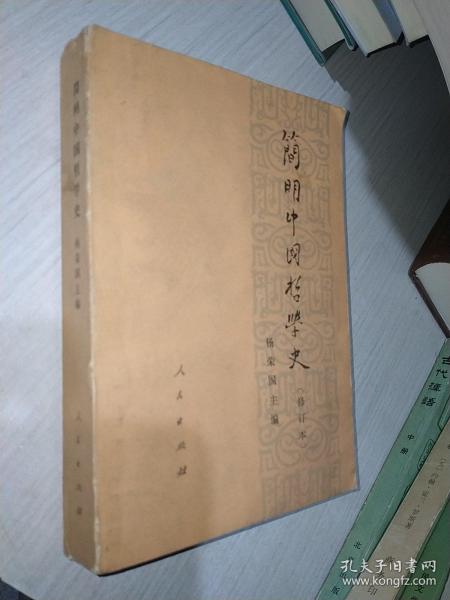 简明中国哲学史
杨荣国主编
人民出版社
簡明中国哲學史
(修订本)
杨荣国主编
人民出版社
古代漢語
中册
北
出版
印
孔夫子旧书网
www.kongfz.com